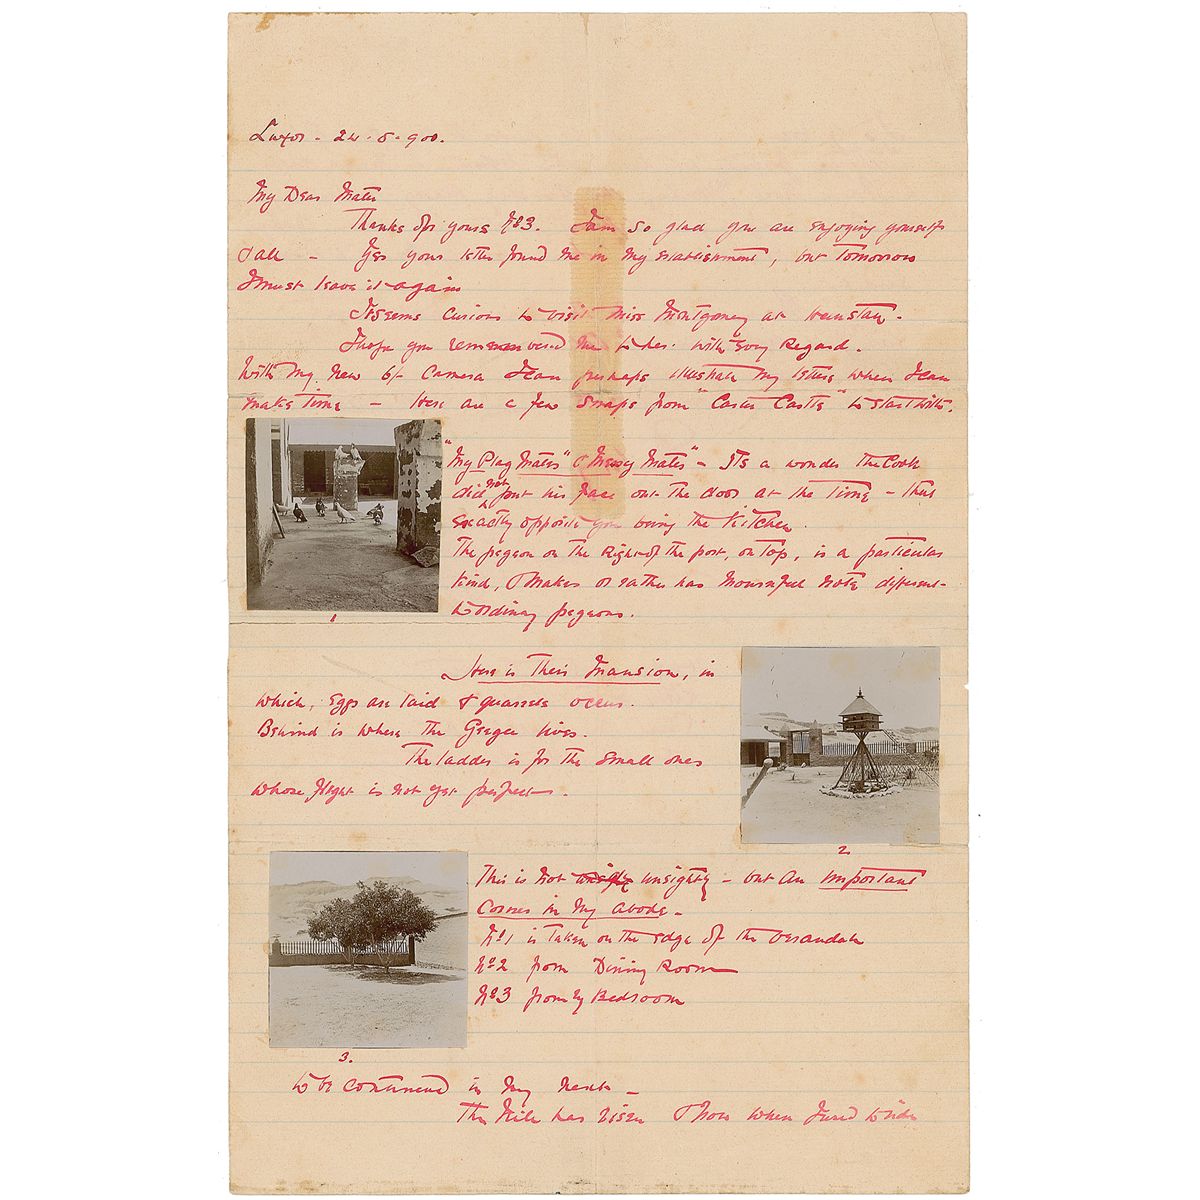 Luxor - 24. 5. 900.
My Dear Mater
Thanks for yours No3. I am so glad you are enjoying yourselfs
& all - Yes your letter found me in my establishment, but Tomorrow
I must leave it again
It seems curious to visit Miss Montgomery at
I hope you remembered me to her. with Every Regard.
With My New 6/- Camera I can perhaps illustrate My letters when I can
make Time - Here are a few Snaps from "Carter Castle" to start with.
"My Play Mates" & Messy Mates" - Its a wonder The Cook
did not put his face out the door at the Time - that
exactly opposite you being the Kitchen.
The pegeon on the Right of the post, on Top, is a particular
kind, & makes or rather has mournful note different
to ordinary pegeons.
1
Here is Their Mansion, in
which, Eggs are laid & quarrels occur.
Behind is where the Geegee lives.
The ladder is for the small ones
whose flight is not yet perfect.
2
This is not unsighty - but an Important
Corner in My abode -
No1 is Taken on the edge of the verandah
No2 from Dining Room
No3 from my Bedroom
3.
to be continued in My next -
The Nile has risen & now when I used to ride